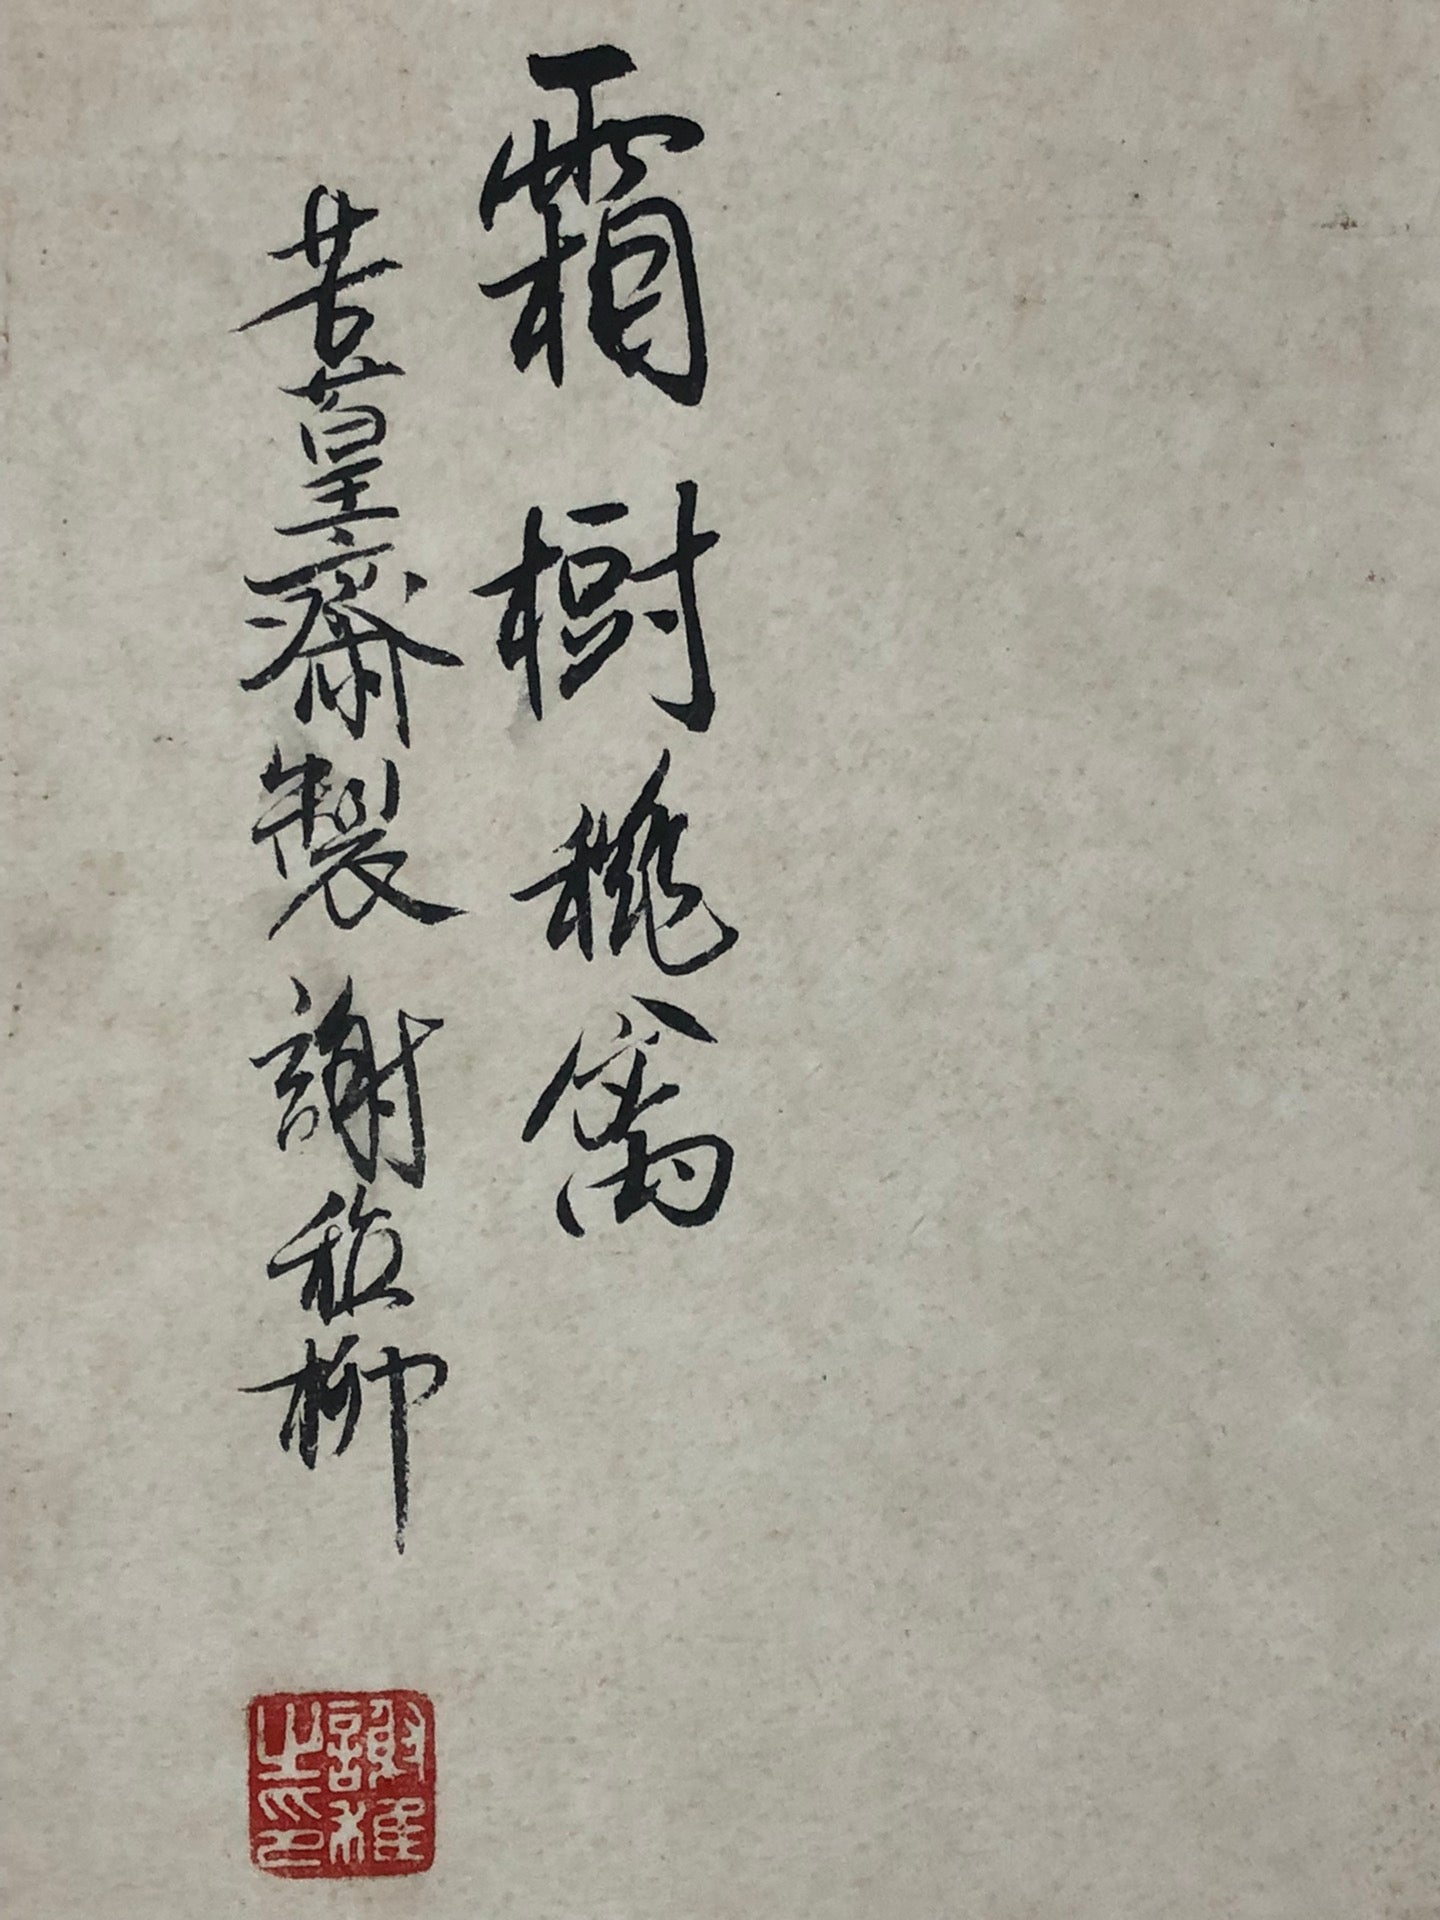 霜樹穐禽
苦篁齋製 謝稚柳
謝稚
之印